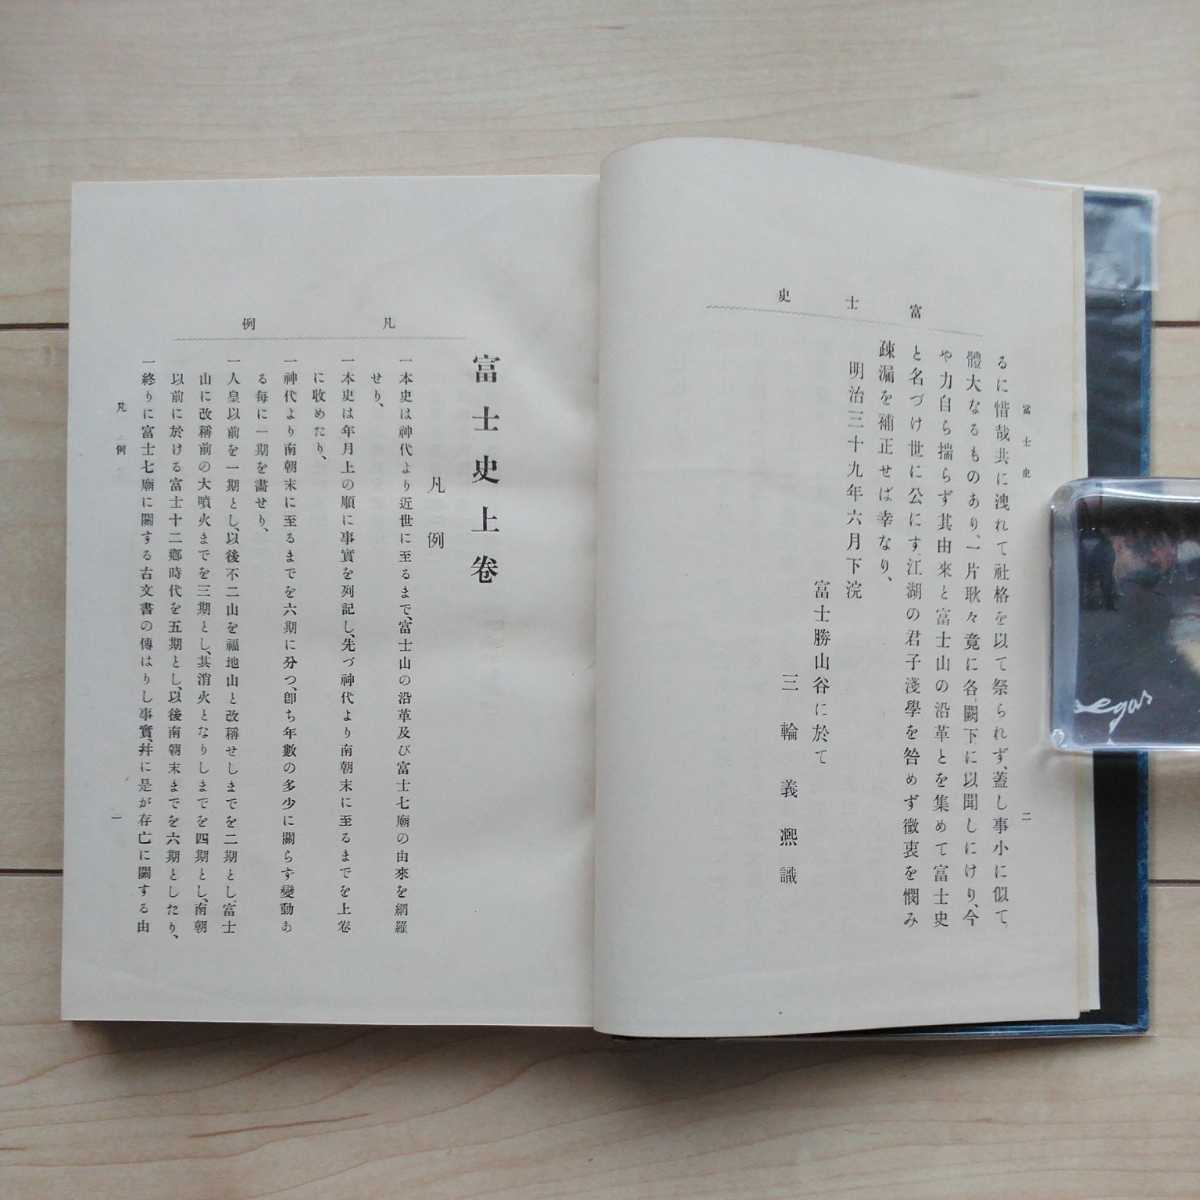 富士史
富士史
二
るに惜哉共に洩れて社格を以て祭られず、蓋し事小に似て
體大なるものあり、一片耿々竟に各闕下に以聞しにけり、今
や力自ら揣らず其由來と富士山の沿革とを集めて富士史
と名づけ世に公にす、江湖の君子淺學を咎めず微衷を憫み
疎漏を補正せば幸なり、
明治三十九年六月下浣
富士勝山谷に於て
三輪義凞識
egas
凡例
富士史上卷
凡例
一本史は神代より近世に至るまで、富士山の沿革及び富士七廟の由來を網羅
せり、
一本史は年月上の順に事實を列記し、先づ神代より南朝末に至るまでを上卷
に收めたり、
一神代より南朝末に至るまでを六期に分つ、卽ち年數の多少に關らず變動あ
る每に一期を畫せり、
一人皇以前を一期とし、以後不二山を福地山と改稱せしまでを二期とし、富士
山に改稱前の大噴火までを三期とし、其消火となりしまでを四期とし、南朝
以前に於ける富士十二鄕時代を五期とし、以後南朝末までを六期としたり、
一終りに富士七廟に關する古文書の傳はりし事實、幷に是が存亡に關する由
凡例
一